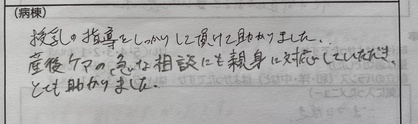 (病棟)
授乳の指導をしっかりして頂けて助かりました。
産後ケアの急な相談にも親身に対応していただき、
とても助かりました。